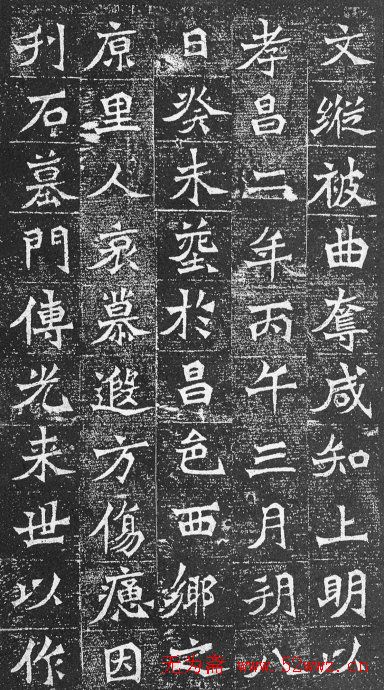 文縱被曲奪咸知上明以
孝昌二年丙午三月朔八
日癸未塟於昌邑西鄉
原里人哀慕遐方傷因
刋石墓門傳光来世以作
无为斋 www.52wwz.cn